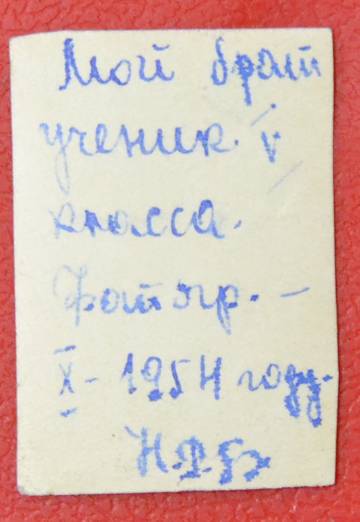 Мой брат
ученик V
класса.
Фотогр. —
X - 1954 году.